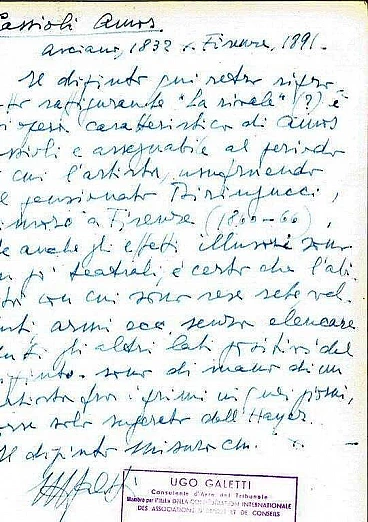 Cassioli Amos.
Asciano, 1832 . Firenze, 1891 -
Il dipinto qui retro ripro-
tto raffigurante "La rivale" (?) è
opera caratteristica di Amos
ssioli e assegnabile al periodo
cui l'artista, usufruendo
l pensionato Biringucci,
imorò a Firenze (1860-66),
e anche gli effetti illusori sono
n pò teatrali, è certo che l'abi-
ità con cui sono rese sete vel-
uti armi ecc senza elencare
tutti gli altri lati positivi del
ipinto - sono di mano di un
artista fra i primi in quei giorni,
orse solo superato dall'Hayez.
Il dipinto misura cm.
UGO GALETTI
Consulente d'Arte del Tribunale
Membro per l'Italia della CONFEDERATION INTERNATIONALE
DES ASSOCIATIONS D'EXPERTS ET DE CONSEILS